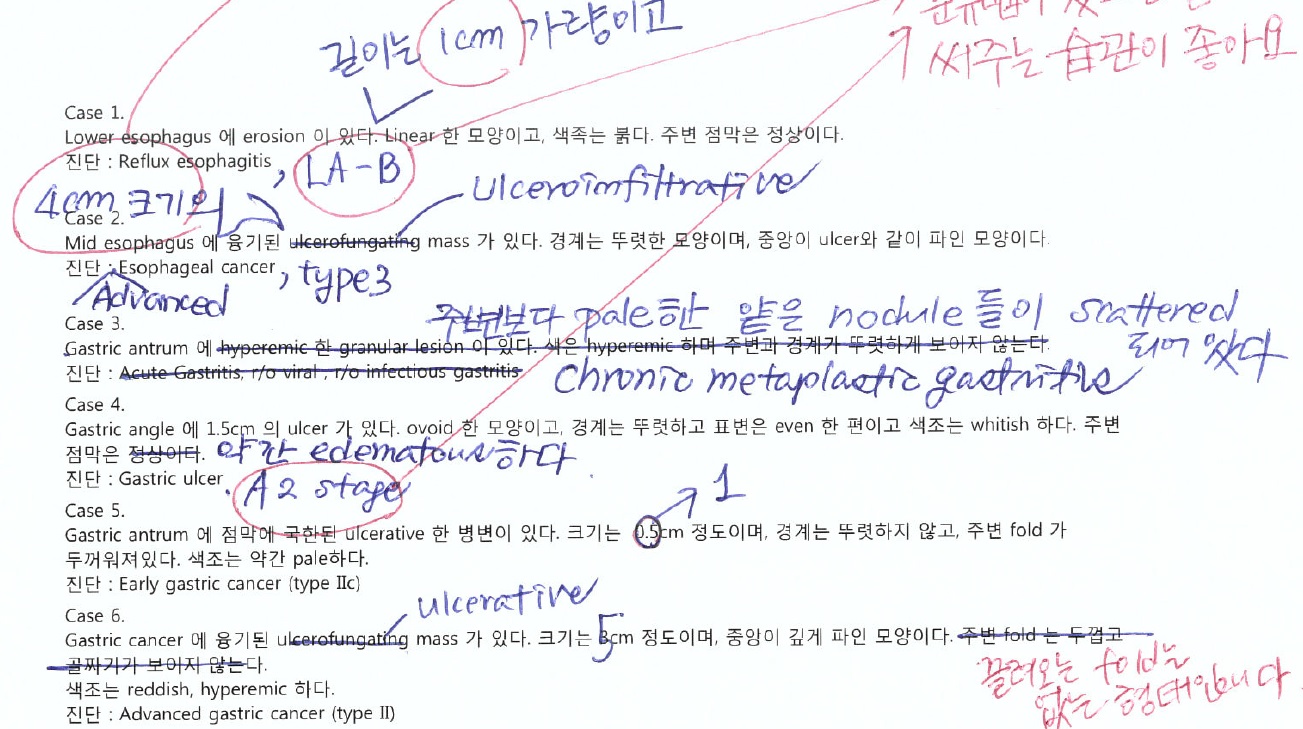 길이는 1cm 가량이고
써주는 습관이 좋아요
Case 1.
Lower esophagus 에 erosion 이 있다. Linear 한 모양이고, 색족는 붉다. 주변 점막은 정상이다.
진단 : Reflux esophagitis, LA-B
4cm 크기의
ulceroinfiltrative
Case 2.
Mid esophagus 에 융기된 ulcerofungating mass 가 있다. 경계는 뚜렷한 모양이며, 중앙이 ulcer와 같이 파인 모양이다.
진단 : Esophageal cancer, type3
Advanced
주변보다 pale한 얕은 nodule 들이 scattered
되어 있다
Case 3.
Gastric antrum 에 hyperemic 한 granular lesion 이 있다. 색은 hyperemic 하며 주변과 경계가 뚜렷하게 보이지 않는다.
진단 : Acute Gastritis, r/o viral , r/o infectious gastritis
Chronic metaplastic gastritis
Case 4.
Gastric angle 에 1.5cm 의 ulcer 가 있다. ovoid 한 모양이고, 경계는 뚜렷하고 표변은 even 한 편이고 색조는 whitish 하다. 주변
점막은 정상이다. 약간 edematous하다
진단 : Gastric ulcer. A2 stage
1
Case 5.
Gastric antrum 에 점막에 국한된 ulcerative 한 병변이 있다. 크기는 0.5cm 정도이며, 경계는 뚜렷하지 않고, 주변 fold 가
두꺼워져있다. 색조는 약간 pale하다.
진단 : Early gastric cancer (type IIc)
ulcerative
Case 6.
Gastric cancer 에 융기된 ulcerofungating mass 가 있다. 크기는 3cm 정도이며, 중앙이 깊게 파인 모양이다. 주변 fold 는 두껍고
5
골짜기가 보이지 않는다.
끌려오는 fold는
없는 형태입니다
색조는 reddish, hyperemic 하다.
진단 : Advanced gastric cancer (type II)